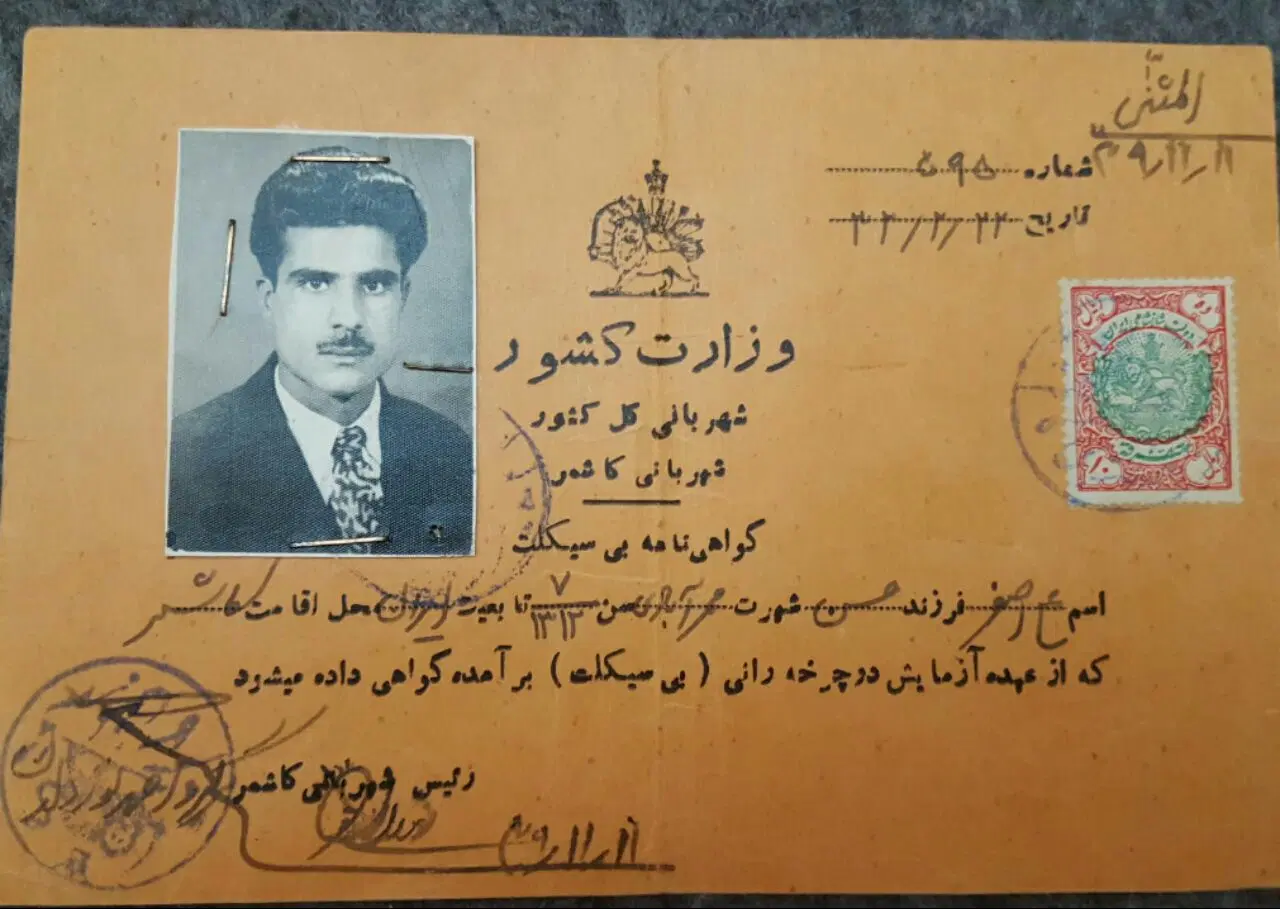 المثنی
۳۹/۱۱/۱۱
شماره ۶۹۵
تاریخ
وزارت کشور
شهربانی کل کشور
شهربانی کاشمر
گواهی نامه بی سیکلت
اسم علی اصغر فرزند حسن شهرت سن ۷ ۱۳۱۲ تابعیت ایران محل اقامت کاشمر
که از عهده آزمایش دوچرخه رانی ( بی سیکلت ) برآمده گواهی داده میشود
رئیس شهربانی کاشمر
۳۹/۱۱/۱۱
ده ریال
دولت شاهنشاهی ایران
۱۰